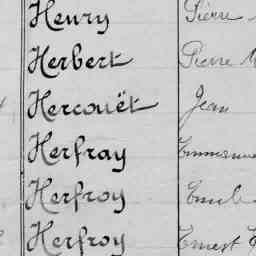 Henry Pierre
Herbert Pierre
Hercouët Jean
Herfray
Herfroy
Herfroy Ernest